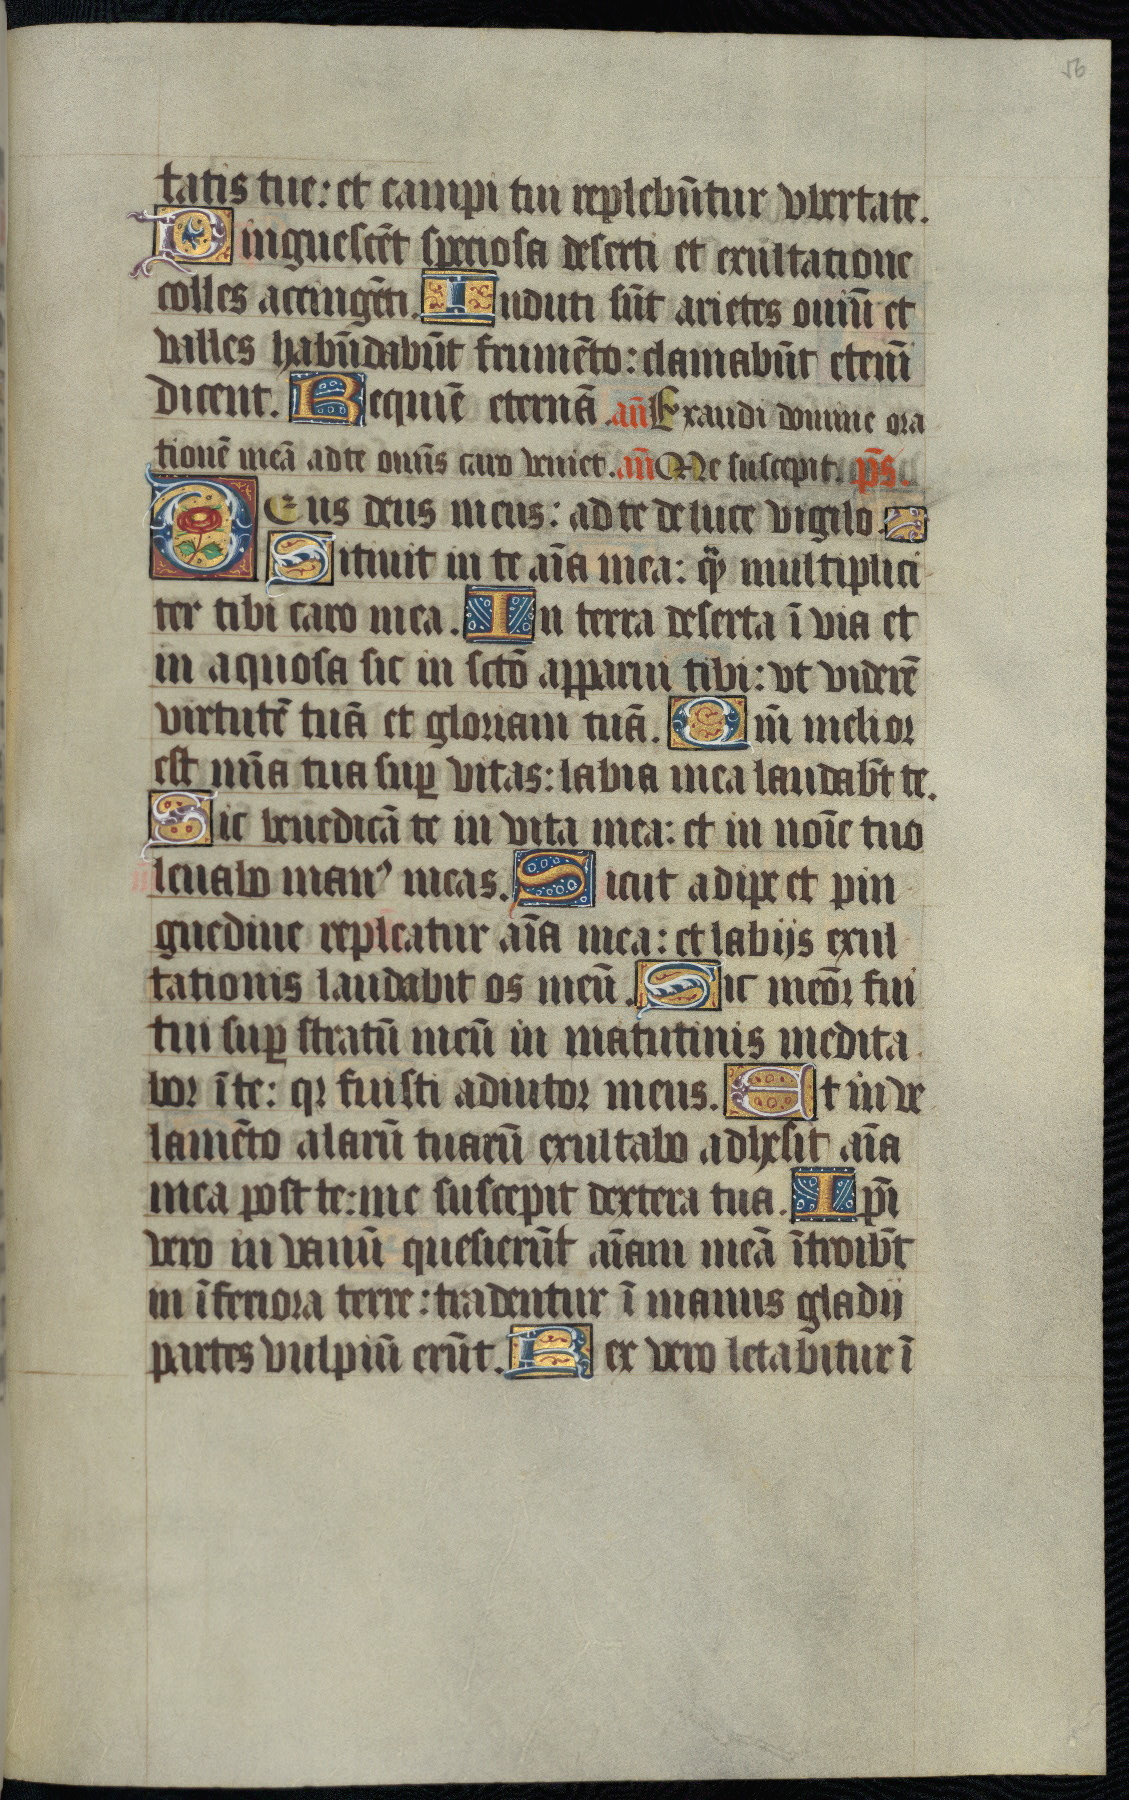 56
tatis tue: et campi tui replebūtur vbertate.
Pinguescēt speciosa deserti et exultatione
colles accingēti. Induti sūt arietes ouiū et
valles habūdabūt frumēto: clamabūt etenī
dicent. Requiē eternā. añ Exaudi domine ora
tionē meā ad te omīs caro veniet. añ Me suscepit. ps̄.
Deus deus meus: ad te de luce vigilo.
Sitiuit in te aīa mea: q̄ȝ multiplici
ter tibi caro mea. In terra deserta ī via et
in aquosa sic in sctō apparui tibi: vt viderē
virtutē tuā et gloriam tuā. Qm̄ melior
est mīa tua suꝑ vitas: labia mea laudabt̄ te.
Sic benedicā te in vita mea: et in noīe tuo
leuabo manꝰ meas. Sicut adipe et pin
guedine repleatur aīa mea: et labijs exul
tationis laudabit os meū. Sic meōr fui
tui suꝑ stratū meū in matutinis medita
bor ī te: qꝛ fuisti adiutor meus. Et in ve
lamēto alarū tuarū exultabo adhesit aīa
mea post te: me suscepit dextera tua. Ipī
vero in vanū quesierūt aīam meā ītroibt̄
in īferiora terre: tradentur ī manus gladij
partes vulpiū erūt. Rex vero letabitur ī